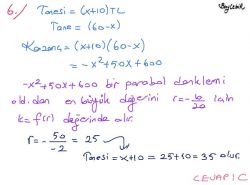 6./ Tanesi = (x+10) TL
Tane = (60-x)
Kazanç = (x+10)(60-x)
= -x²+50x+600
-x²+50x+600 bir parabol denklemi
old.dan en büyük değerini r=-b/2a için
k=f(r) değerinde alır.
r = -50/-2 = 25
Tanesi = x+10 = 25+10 = 35 olur.
CEVAP: C